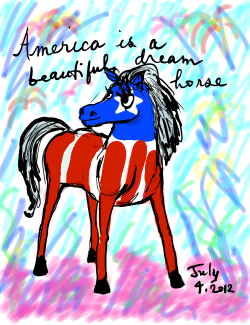 America is a
beautiful dream
horse
July
4.2012